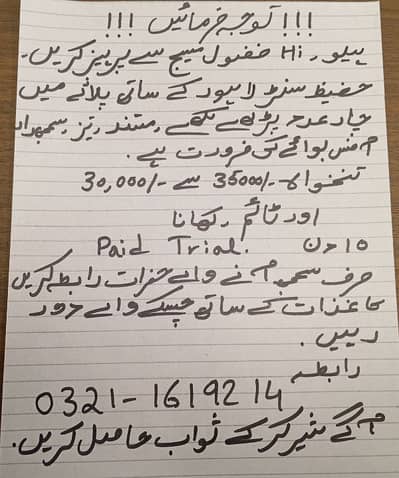 !!! توجہ فرمائیں !!!
ہیلو، Hi فضول میسج سے پرہیز کریں۔
حفیظ سنٹر لاہور کے ساتھ پلازے میں
چار عدد پڑھے لکھے، مستند، تیز، سمجھدار
آفس بوائے کی ضرورت ہے۔
تنخواہ 35000/- سے 30,000/-
اور ٹائم، کھانا
10 دن Paid Trial.
صرف سمجھ آنے والے حضرات رابطہ کریں
کاغذات کے ساتھ چسکے والے دور
رہیں۔
رابطہ
0321-1619214
آگے شیئر کرکے ثواب حاصل کریں۔